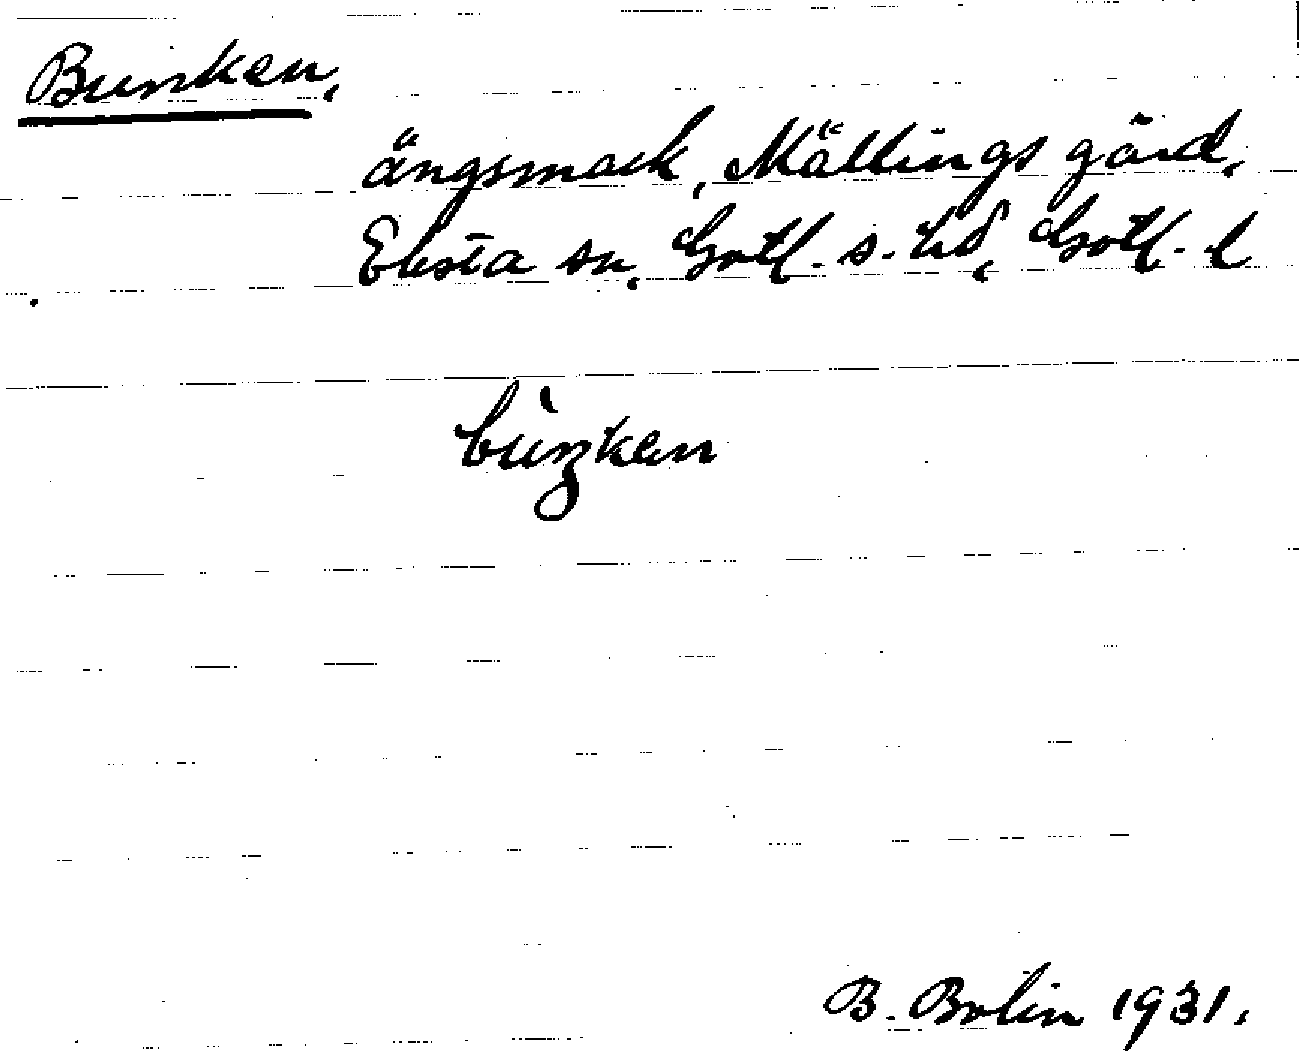 Bunken,
ängsmark, Mällings gård,
Eksta sn, Gotl. s. hd, Gotl. l
bùŋken
B. Bolin 1931.